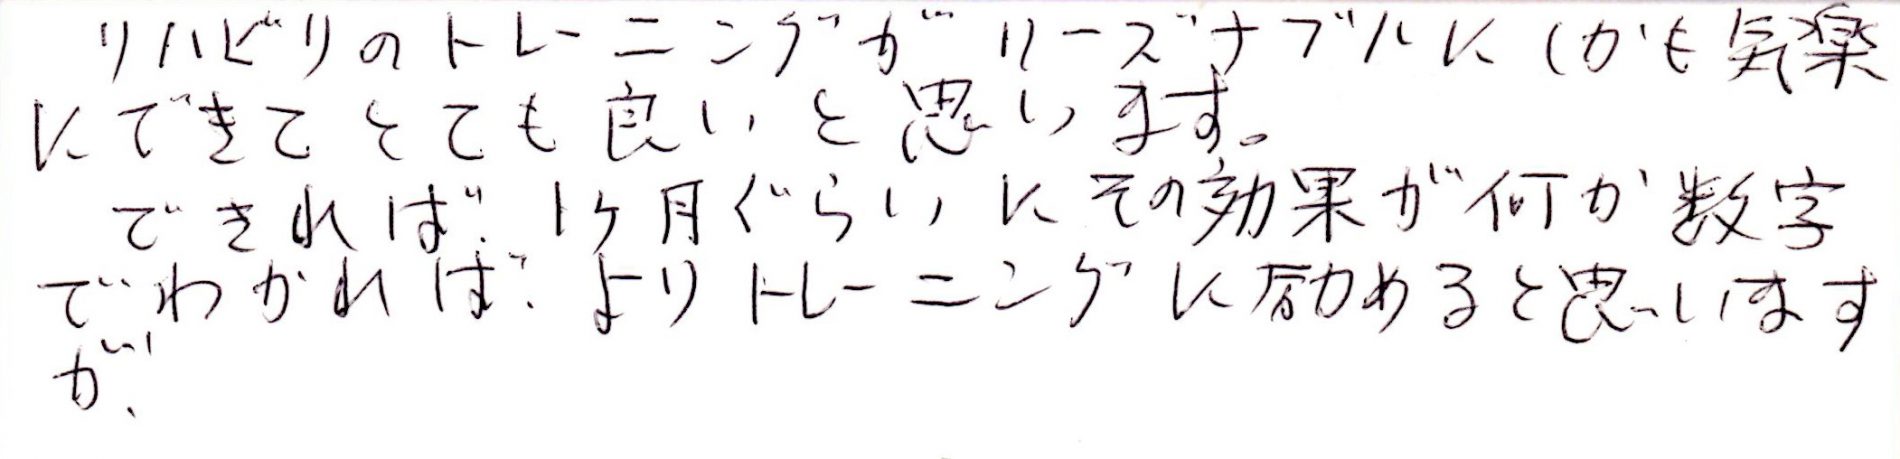 リハビリのトレーニングがリーズナブルにしかも気楽
にできてとても良いと思います。
できれば、1ヶ月ぐらいにその効果が何か数字
でわかれば、よりトレーニングに励めると思います
が、